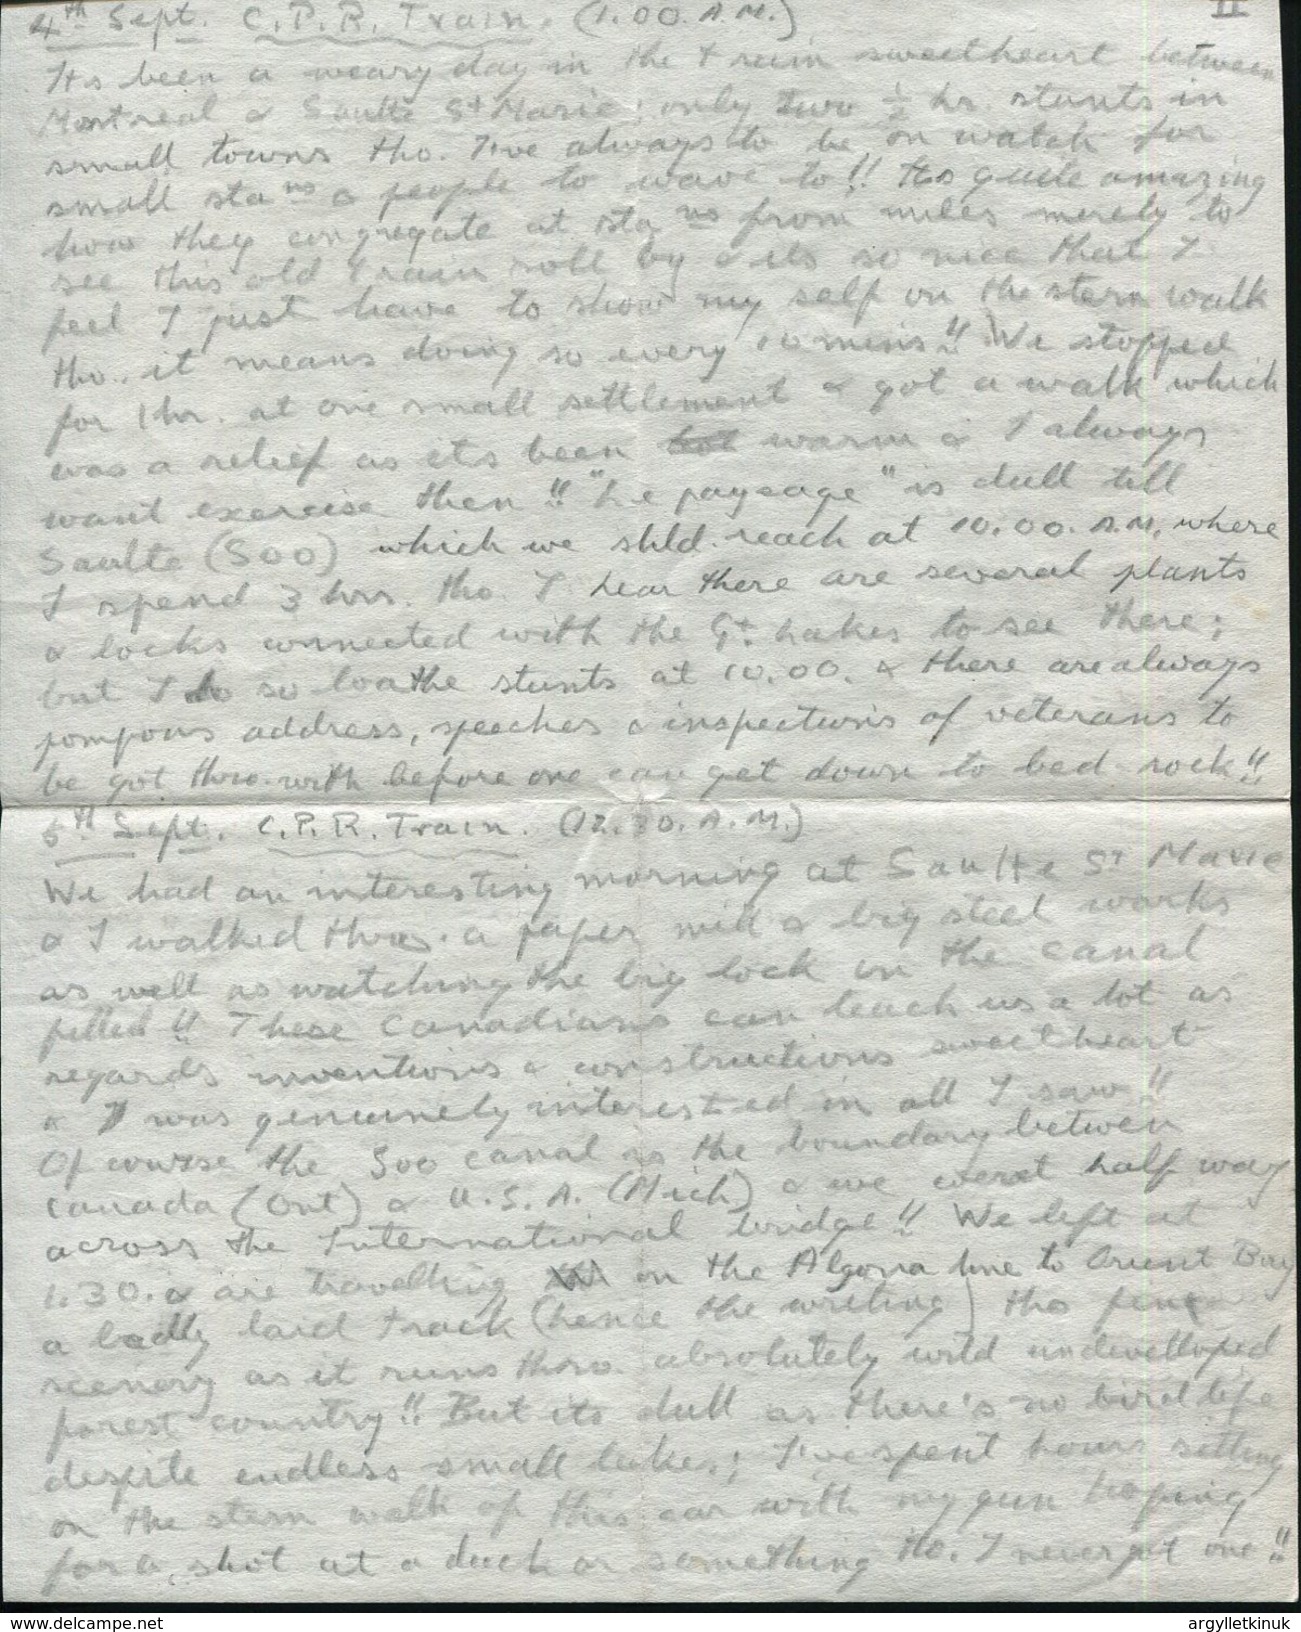 II
4th Sept. C.P.R. Train. (1.00 A.M.)
Its been a weary day in the train sweetheart between
Montreal & Saulte St Marie; only two ½ hr. stunts in
small towns tho. I've always to be on watch for
small stans & people to wave to!! Its quite amazing
how they congregate at stans from miles merely to
see this old train roll by & its so nice that I
feel I just have to show my self on the stern walk
tho. it means doing so every 10 mins!! We stopped
for 1 hr. at one small settlement & got a walk which
was a relief as its been warm & I always
want exercise then!! "Le paysage" is dull till
Saulte (Soo) which we shld. reach at 10.00. A.M. where
I spend 3 hrs. tho. I hear there are several plants
& locks connected with the Gt. Lakes to see there;
but I do so loathe stunts at 10.00. & there are always
pompous address, speeches & inspections of veterans to
be got thro. with before one can get down to bed-rock!!
5th Sept. C.P.R. Train. (12.30. A.M.)
We had an interesting morning at Saulte St Marie
& I walked thro. a paper mill & big steel works
as well as watching the big lock in the canal
filled!! These Canadians can teach us a lot as
regards inventions & constructions sweetheart
& I was genuinely interested in all I saw!!
Of course the Soo canal is the boundary between
Canada (Ont) & U.S.A. (Mich) & we went half way
across the International bridge!! We left at
1.30. & are travelling on the Algoma line to Orient Bay
a badly laid track (hence the writing) tho fine
scenery as it runs thro. absolutely wild undevelloped
forest country!! But its dull as there's no bird life
despite endless small lakes; I've spent hours sitting
on the stern walk of this car with my gun hoping
for a shot at a duck or something tho. I never got one!!
delcampe.net
argylletkinuk